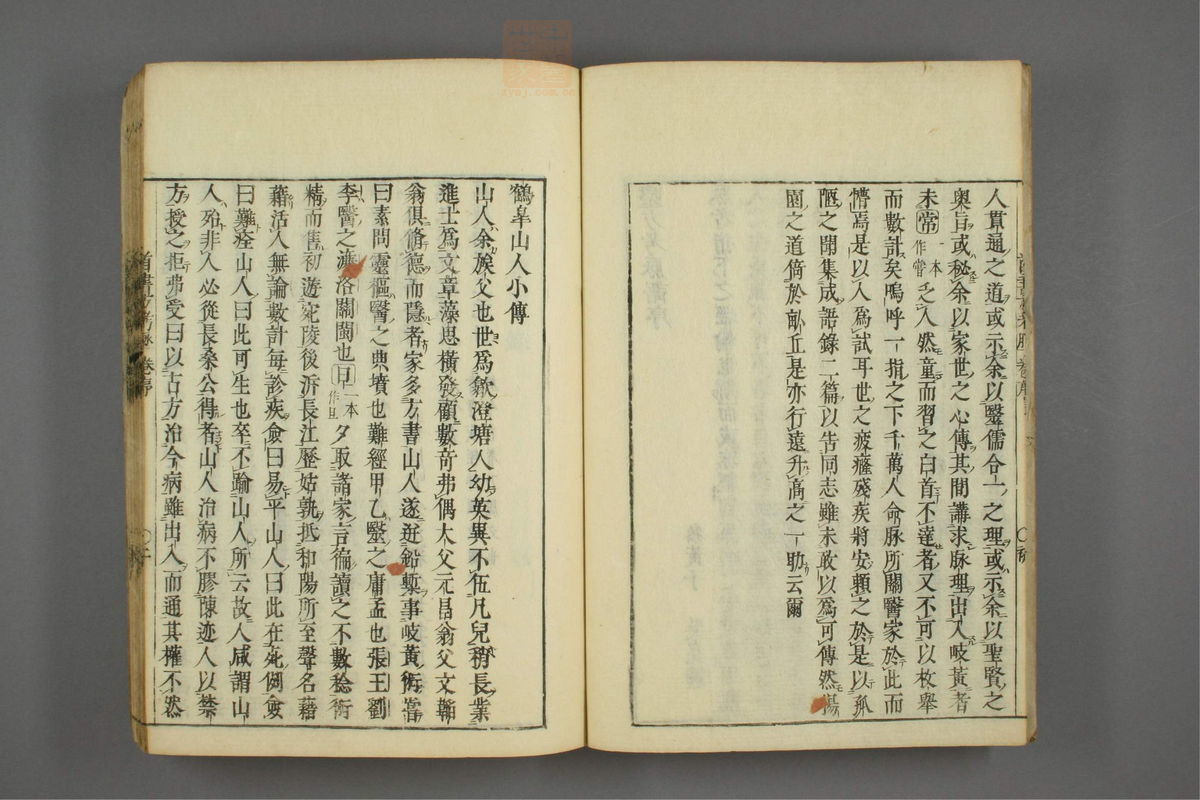 人貫通之道或示余以醫儒合一之理或示余以聖賢之
奧旨或秘余以家世之心傳其間講求脉理出入岐黃者
未常一本作嘗乏人然童而習之白首不達者又不可以枚舉
而數計矣嗚呼一指之下千萬人命脉所關醫家於此而
懵焉是以人為試耳世之疲癃殘疾將安賴之於是以孤
陋之聞集成語錄二篇以告同志雖未敢以為可傳然塲
園之道倘於畝丘是亦行遠升高之一助云爾
鶴皐山人小傳
山人余族父也世為歙澄塘人幼英異不伍凡兒稍長業
進士為文章藻思橫發顧數奇弗偶大父元昌翁父文韜
翁俱脩德而隱者家多方書山人遂逃鉛槧事岐黃術嘗
曰素問靈樞醫之典墳也難經甲乙醫之庸孟也張王劉
李醫之濂洛關閩也日一本作旦夕取諸家言徧讀之不數稔術
精而售初遊宛陵後泝長江歷姑孰抵和陽所至聲名藉
藉活人無論數計每診疾僉曰易平山人曰此在死例僉
曰難痊山人曰此可生也卒不踰山人所云故人咸謂山
人殆非人必從長桑公得者山人治病不膠陳迹人以禁
方授之拒弗受曰以古方治今病雖出入而通其權不然